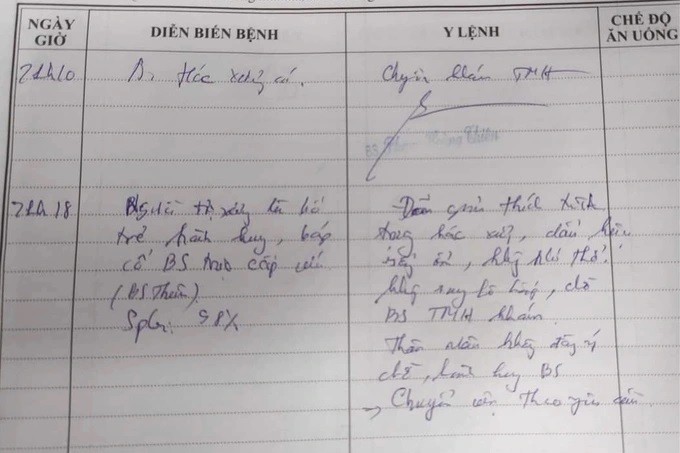 NGÀY GIỜ
DIỄN BIẾN BỆNH
Y LỆNH
CHẾ ĐỘ ĂN UỐNG
21h10
Hóc xương cá.
Chuyển khám TMH
21h18
Người tự xưng là bố
trẻ hành hung, bóp
cổ BS trực cấp cứu
(BS Thiên)
SpO2: 98%
giải thích
trong hóc xương, dấu hiệu
ổn, không khó thở,
không suy hô hấp, chờ
BS TMH khám.
Thân nhân không đồng ý
chờ, hành hung BS
→ Chuyển viện theo yêu cầu.